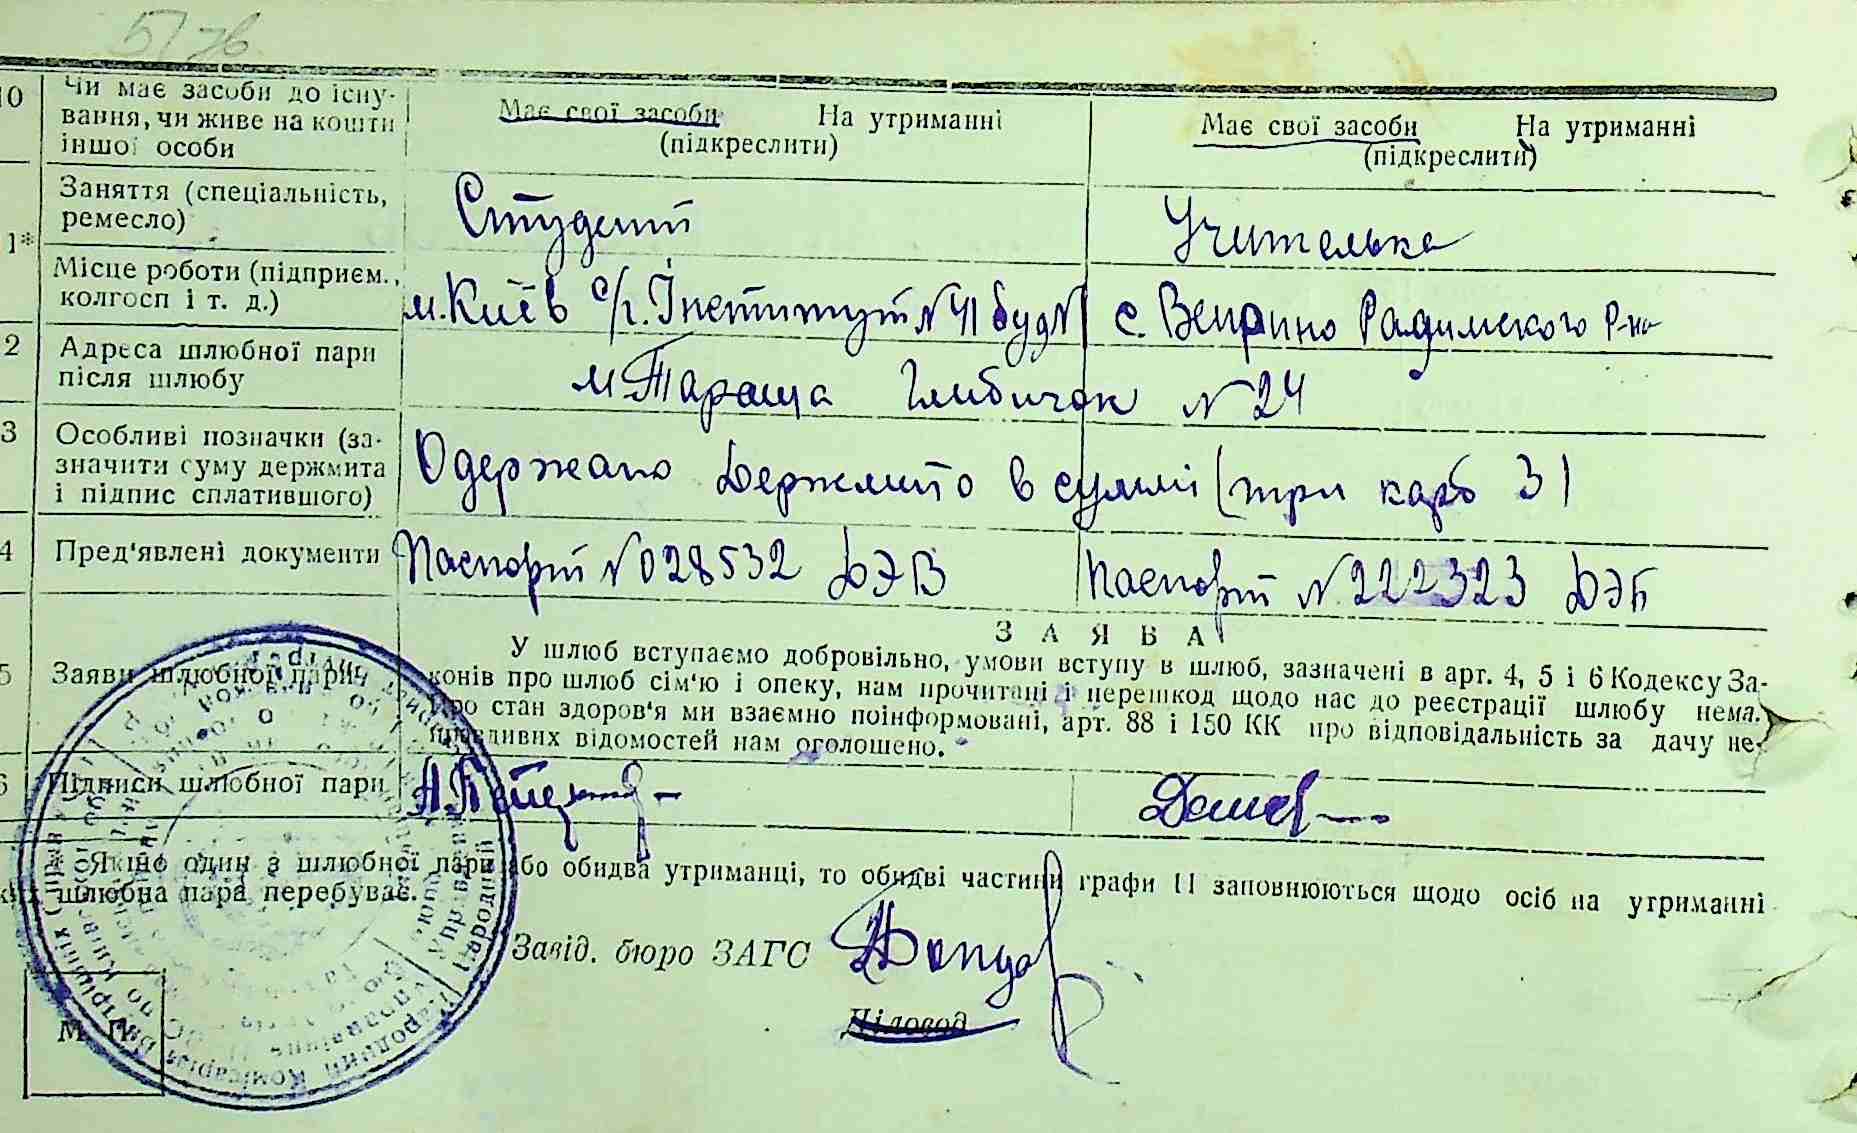 57 зв
10 Чи має засоби до існу-
вання, чи живе на кошти
іншої особи
Має свої засоби На утриманні
(підкреслити)
Має свої засоби На утриманні
(підкреслити)
1* Заняття (спеціальність,
ремесло)
Студент
Учителька
Місце роботи (підприєм.,
колгосп і т. д.)
м. Київ с/г. Інститут № 41 буд №
с. Веприно Радимского р-на
2 Адреса шлюбної пари
після шлюбу
м. Тараща Глибичок № 24
3 Особливі позначки (за-
значити суму держмита
і підпис сплатившого)
Одержано Держмито в суммі (три карб 3)
4 Пред'явлені документи
Паспорт № 028532 ДЭВ
Паспорт № 222323 ДЭБ
ЗАЯВА
5 Заяви шлюбної пари
У шлюб вступаємо добровільно, умови вступу в шлюб, зазначені в арт. 4, 5 і 6 Кодексу За-
конів про шлюб сім'ю і опеку, нам прочитані і перешкод щодо нас до реєстрації шлюбу нема.
Про стан здоров'я ми взаємно поінформовані, арт. 88 і 150 КК про відповідальність за дачу не-
правдивих відомостей нам оголошено.
6 Підписи шлюбної пари
Якщо один з шлюбної пари або обидва утриманці, то обидві частини графи 11 заповнюються щодо осіб на утриманні
яких шлюбна пара перебуває.
Завід. бюро ЗАГС
Діловод
М. П.